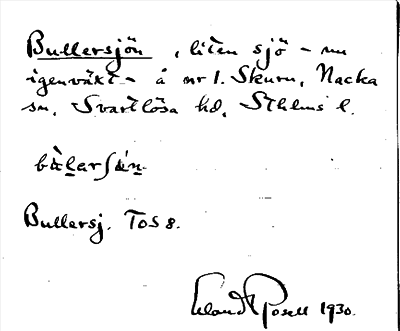 Bullersjön, liten sjö – nu
igenväxt – å nr 1. Skuru, Nacka
sn, Svartlösa hd, Sthlms l.
Bullersj. TOS 8.
Erland Rosell 1930.